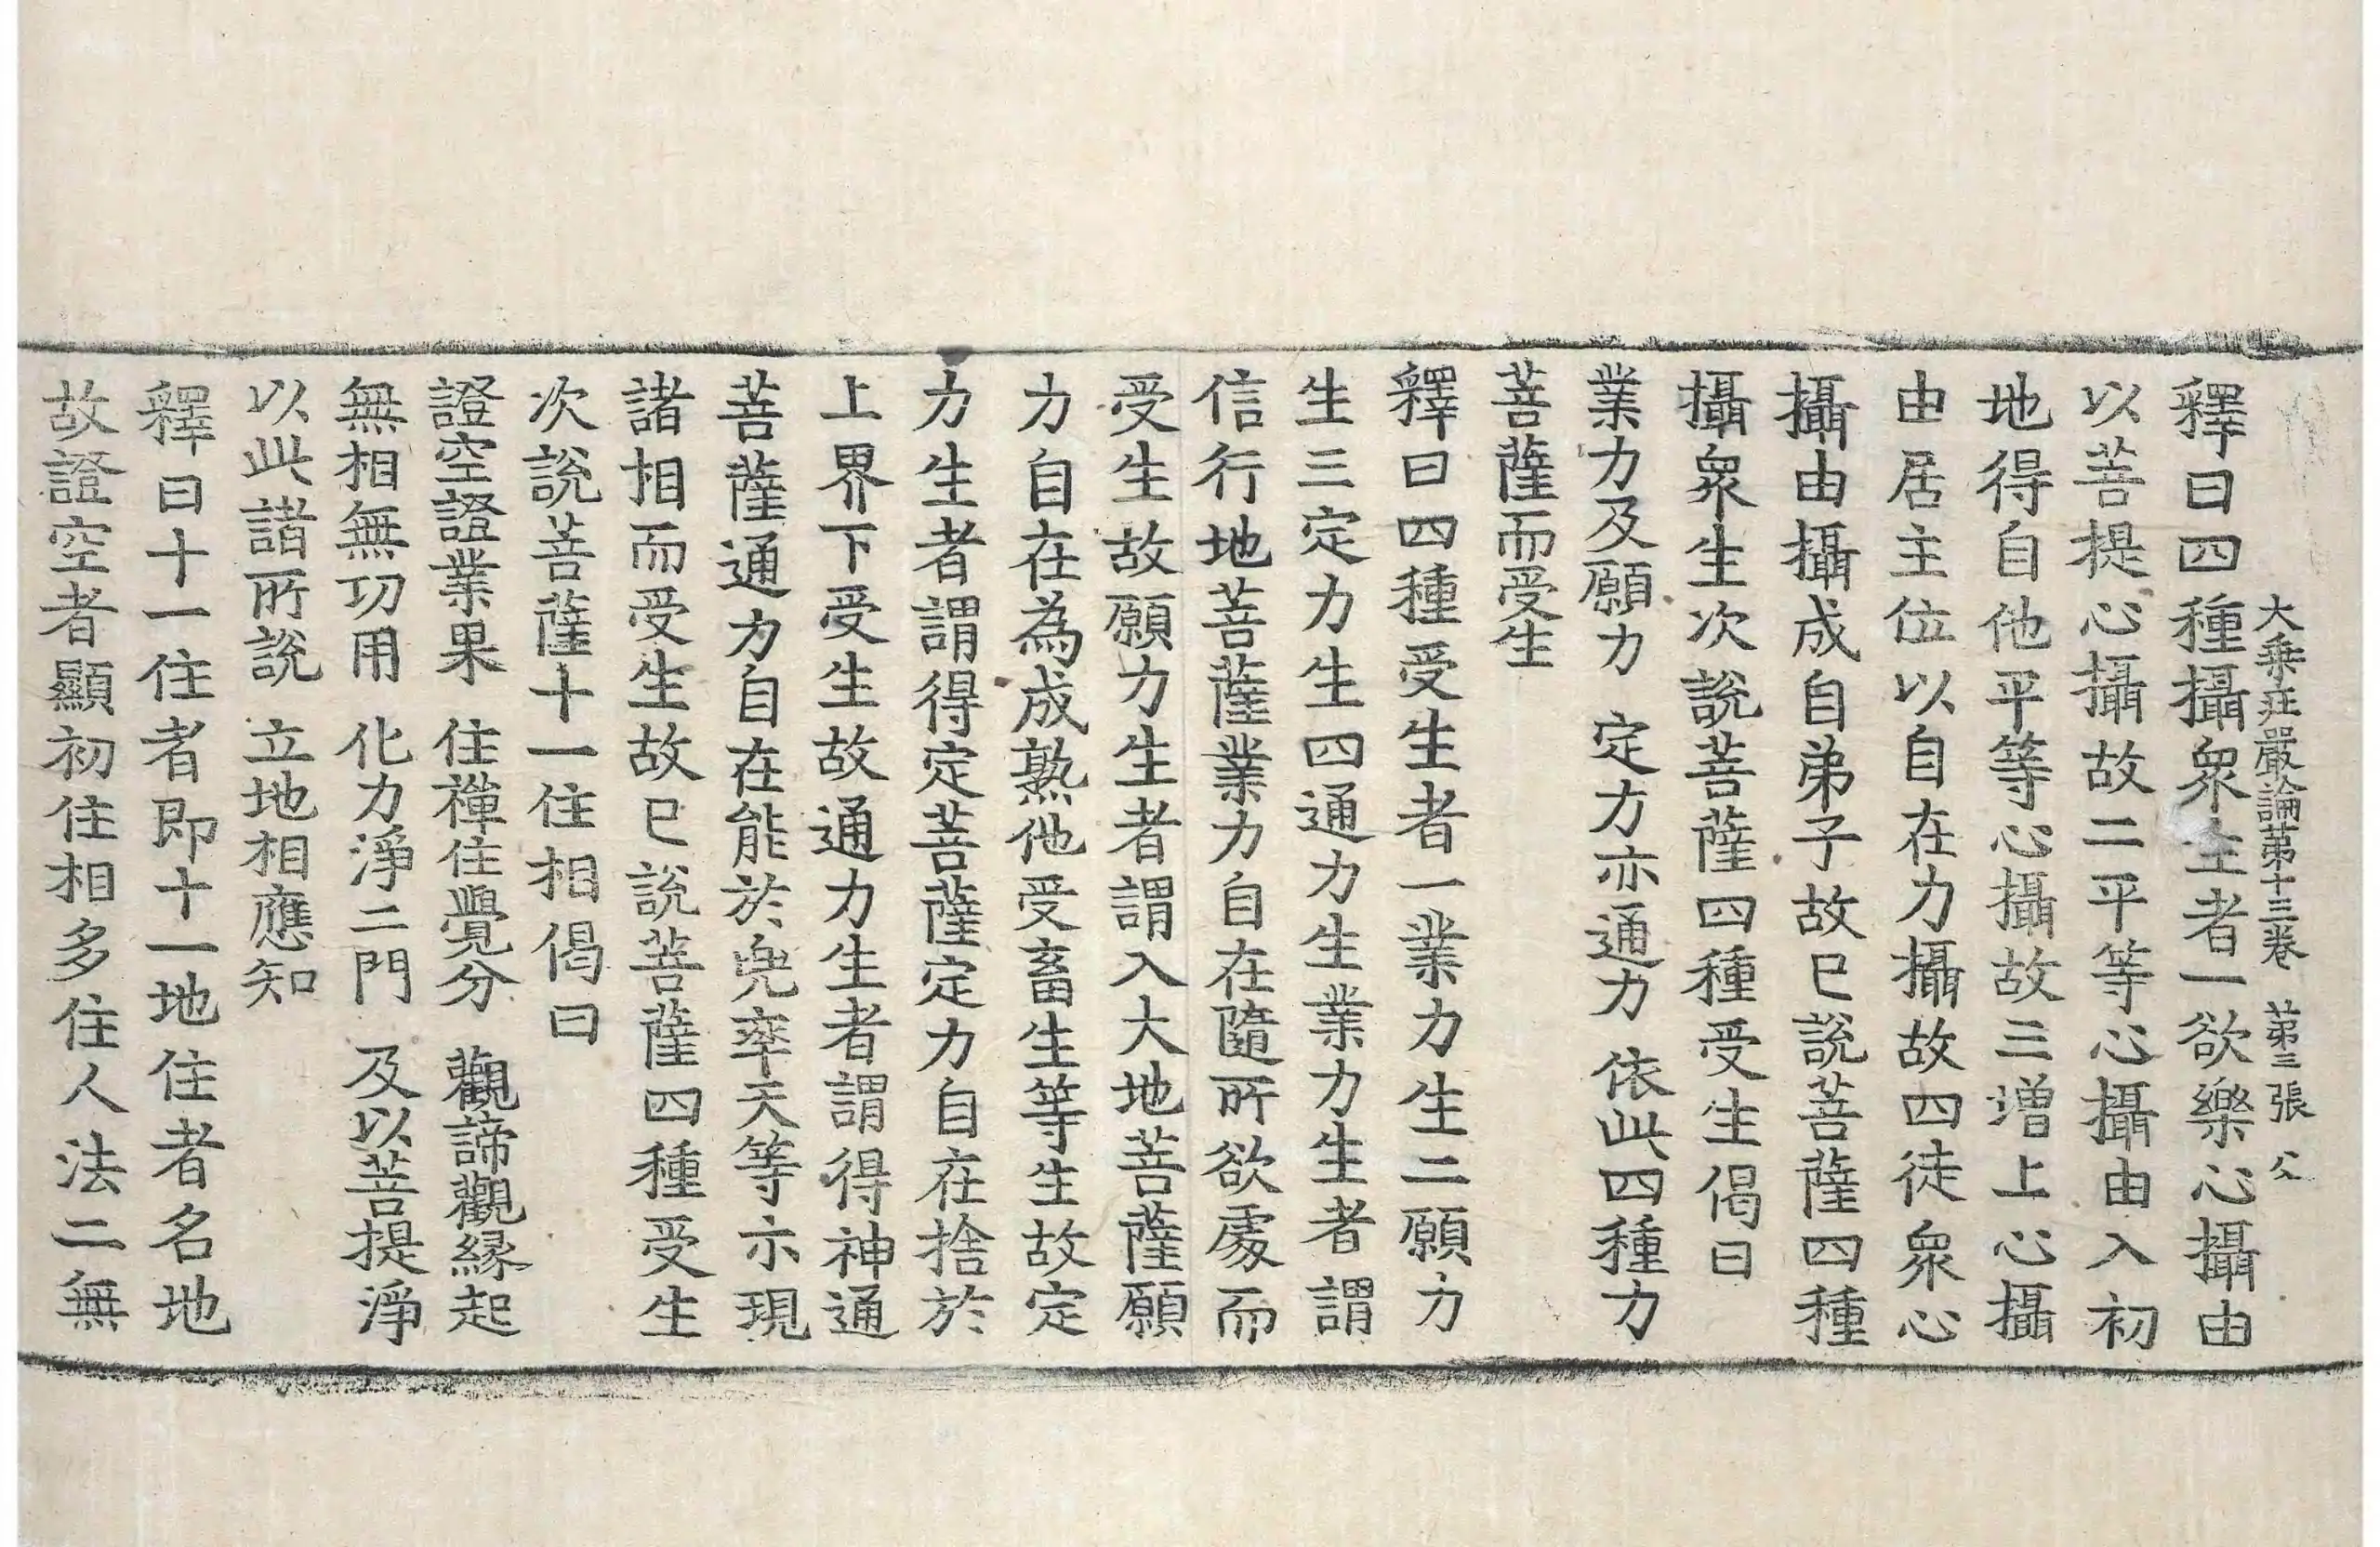 大乘莊嚴論第十三卷 第三張 公
釋曰四種攝衆生者一欲樂心攝由
以菩提心攝故二平等心攝由入初
地得自他平等心攝故三增上心攝
由居主位以自在力攝故四徒衆心
攝由攝成自弟子故已說菩薩四種
攝衆生次說菩薩四種受生偈曰
業力及願力 定力亦通力 依此四種力
菩薩而受生
釋曰四種受生者一業力生二願力
生三定力生四通力生業力生者謂
信行地菩薩業力自在隨所欲處而
受生故願力生者謂入大地菩薩願
力自在為成熟他受畜生等生故定
力生者謂得定菩薩定力自在捨於
上界下受生故通力生者謂得神通
菩薩通力自在能於兜率天等示現
諸相而受生故已說菩薩四種受生
次說菩薩十一住相偈曰
證空證業果 住禪住覺分 觀諦觀縁起
無相無功用 化力淨二門 及以菩提淨
以此諸所說 立地相應知
釋曰十一住者即十一地住者名地
故證空者顯初住相多住人法二無